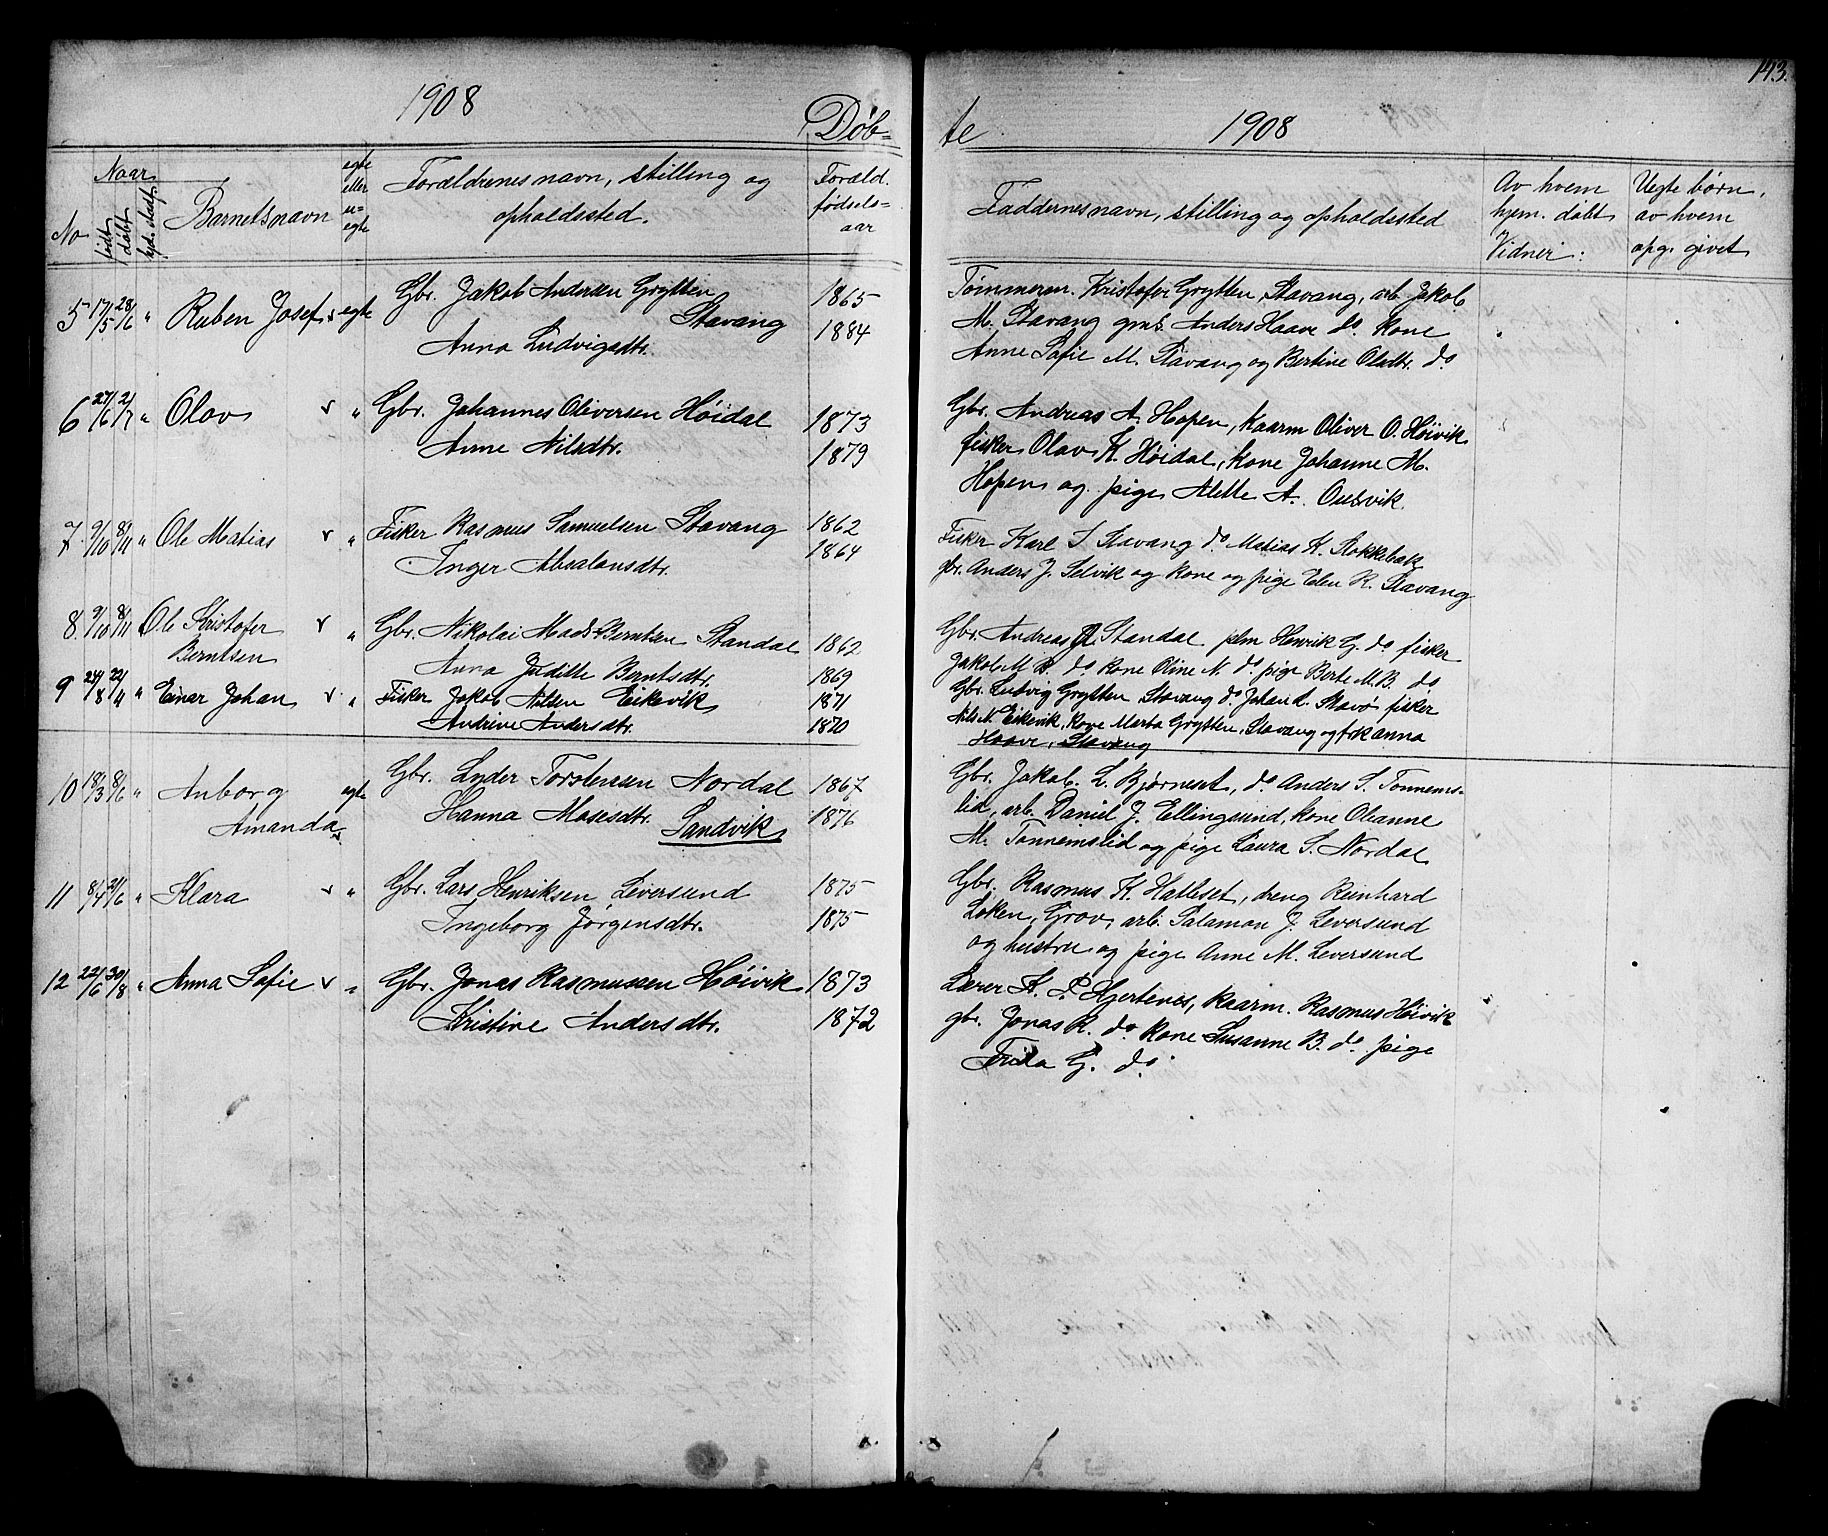 143.
1908
Døb=
te
1908
No
Naar
født
døbt
egte eller u=egte
Barnets navn
Forældrenes navn, stilling og opholdssted.
Foræld. fødsels=aar
Faddernes navn, stilling og opholdssted
Av hvem hjem. døbt Vidner:
Uegte børn, av hvem opg. givet
5 17/5 28/6 " Ruben Josef v egte Gbr. Jakob Andersen Grytten Stavang 1865
Anna Ludvigsdtr. 1884
Tømmerm. Kristofer Grytten, Stavang, arb. Jakob
M. Stavang gmb. Anders Haave do. kone
Anne Sofie M. Stavang og Bertine Olsdtr. do
6 27/6 2/7 " Olav v " Gbr. Johannes Oliversen Høidal 1873
Anne Nilsdtr. 1879
Gbr. Andreas A. Hopen, kaarm Oliver O. Høivik
fisker Olav K. Høidal, kone Johanne M.
Hopen og pige Alette A. Ousvik.
7 9/10 8/11 " Ole Matias v " Fisker Rasmus Samuelsen Stavang 1862
Inger Absalonsdtr. 1864
Fisker Karl S Stavang do. Matias K. Stokkebæk
gbr. Anders J. Selvik og kone og pige Elen R. Stavang
8 9/10 8/11 Ole Kristofer v " Gbr. Nikolai Mads Berntsen Standal 1862
Berntsen
Anna Juditte Berntsdtr. 1869
Gbr. Andreas Standal plm Henrik G. do fisker
Jakob M B do. kone Oline N. do pige Berte M. B. do
9 24/8 22/11 " Einar Johan v " Fisker Jakob Nilsen Eikevik 1871
Andrine Andersdtr. 1870
Gbr. Ludvig Grytten Stavang do. Johan L. Stavø fisker
Nils N. Eikevik, kone Marta Grytten, Stavang og frk Anna
Haave, Stavang
10 18/3 8/6 " Anborg egte Gbr. Lyder Torstensen Nordal 1867
Amanda v
Hanna Mosesdtr. Sandvik 1876
Gbr. Jakob L. Bjørneset, do Anders S. Tonnems-
lid, arb. Daniel J. Ellingsund, kone Olianne
M. Tonnemslid og pige Laura S. Nordal
11 8/4 21/6 " Klara v " Gbr. Lars Henriksen Leversund 1875
Ingeborg Jørgensdtr. 1875
Gbr. Rasmus K. Hatleset, dreng Reinhard
Løken, Grov, arb. Salamon J. Leversund
og hustru og pige Anne M. Leversund
12 22/6 30/8 " Anna Sofie v " Gbr. Jonas Rasmussen Høivik 1873
Kristine Andersdtr. 1872
Lærer A. P. Hjertenes, kaarm. Rasmus Høivik
gbr. Jonas R. do kone Susanne B. do. pige
Frida G. do